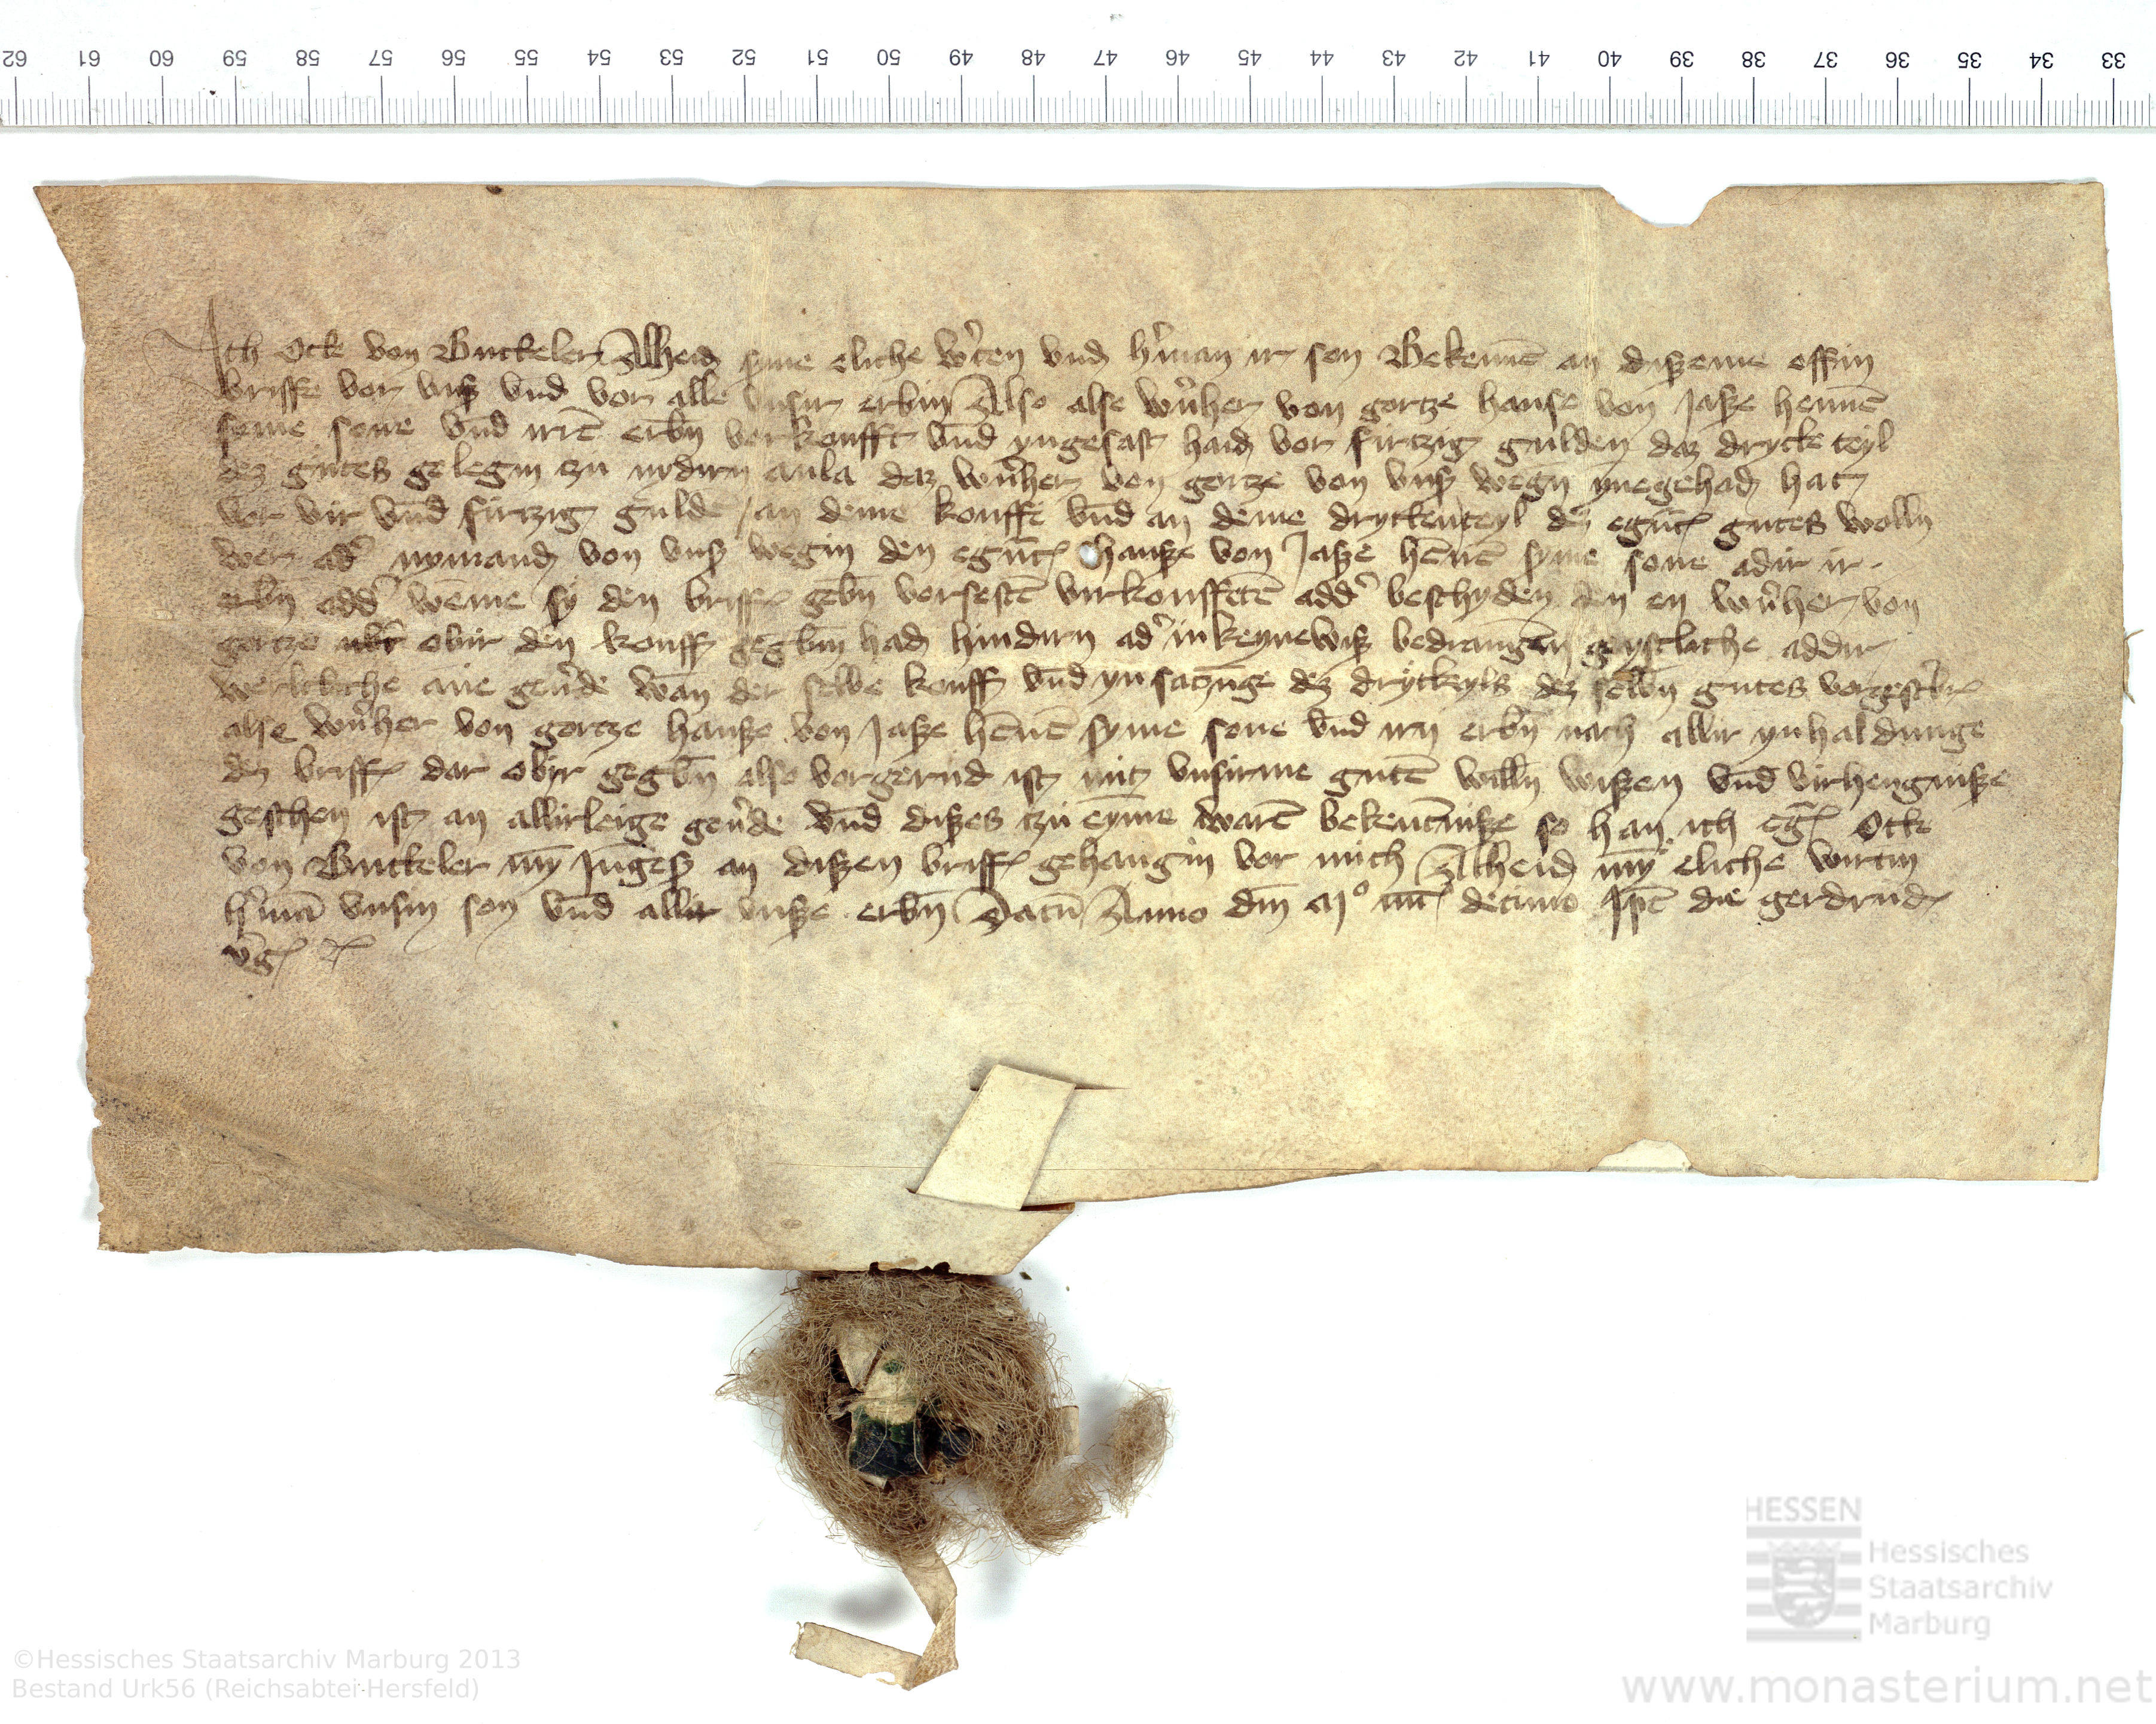 62 61 60 59 58 57 56 55 54 53 52 51 50 49 48 47 46 45 44 43 42 41 40 39 38 37 36 35 34 33
Ich Ocke von Buckeler Alheid syne eliche w'ten vnd h'man ir son Bekennē an diszeme offin
briffe vor vnsz vnd vor alle vnsir erbin Also alse w'nher von gortze hanse von Jasze hennē
syme sone vnd irē erbn̄ vorkoufft vnd yngesast haid vor firtzig gulden daz drycke teyl
dez gutes gelegin tzu nydirn aula daz w'nher von gortze von vnsz wegn ynegehad hat
vor vir vnd firtzig guldē an deme kouffe vnd an deme dryckenteyl dez egn̄t gutes wolln
wer ad' nymand von vnsz wegin den egn̄t hansze von Jasze hēnē syme sone adir ir
erbn̄ add' weme sy den briff gebn̄ vorsestē virkouffetē add' beschyden den en w'nher von
gortze obir den kouff gegebin had hindirn ad' in keynewisz bedrangen geystliche addir
wertliche ane geu'de wan der selbe kouff vnd ynsatzunge dez dryckeyls dez selbn̄ gutes vorgesch'
alse w'nher von gortze hansze von Jasze hēnē syme sone vnd irn erbn̄ nach allir ynhaldunge
dez briff dar obir gegebn̄ also vorgerurd ist mit vnsirme gutē willn wiszen vnd virhengnisze
geschen ist an allirleige geu'de vnd diszes tzu eyme warē bekentnisze so han ich eḡ Ocke
von Buckeler my Ingesz an diszen briff gehangin vor mich Alheid my eliche wirtin
h'mā vnsin son vnd allir vnsze erbn̄ Datū Anno dn̄i M° decimo Ip̄e die gerdrud
v'g
HESSEN
Hessisches
Staatsarchiv
Marburg
©Hessisches Staatsarchiv Marburg 2013
Bestand Urk56 (Reichsabtei-Hersfeld)
www.monasterium.net